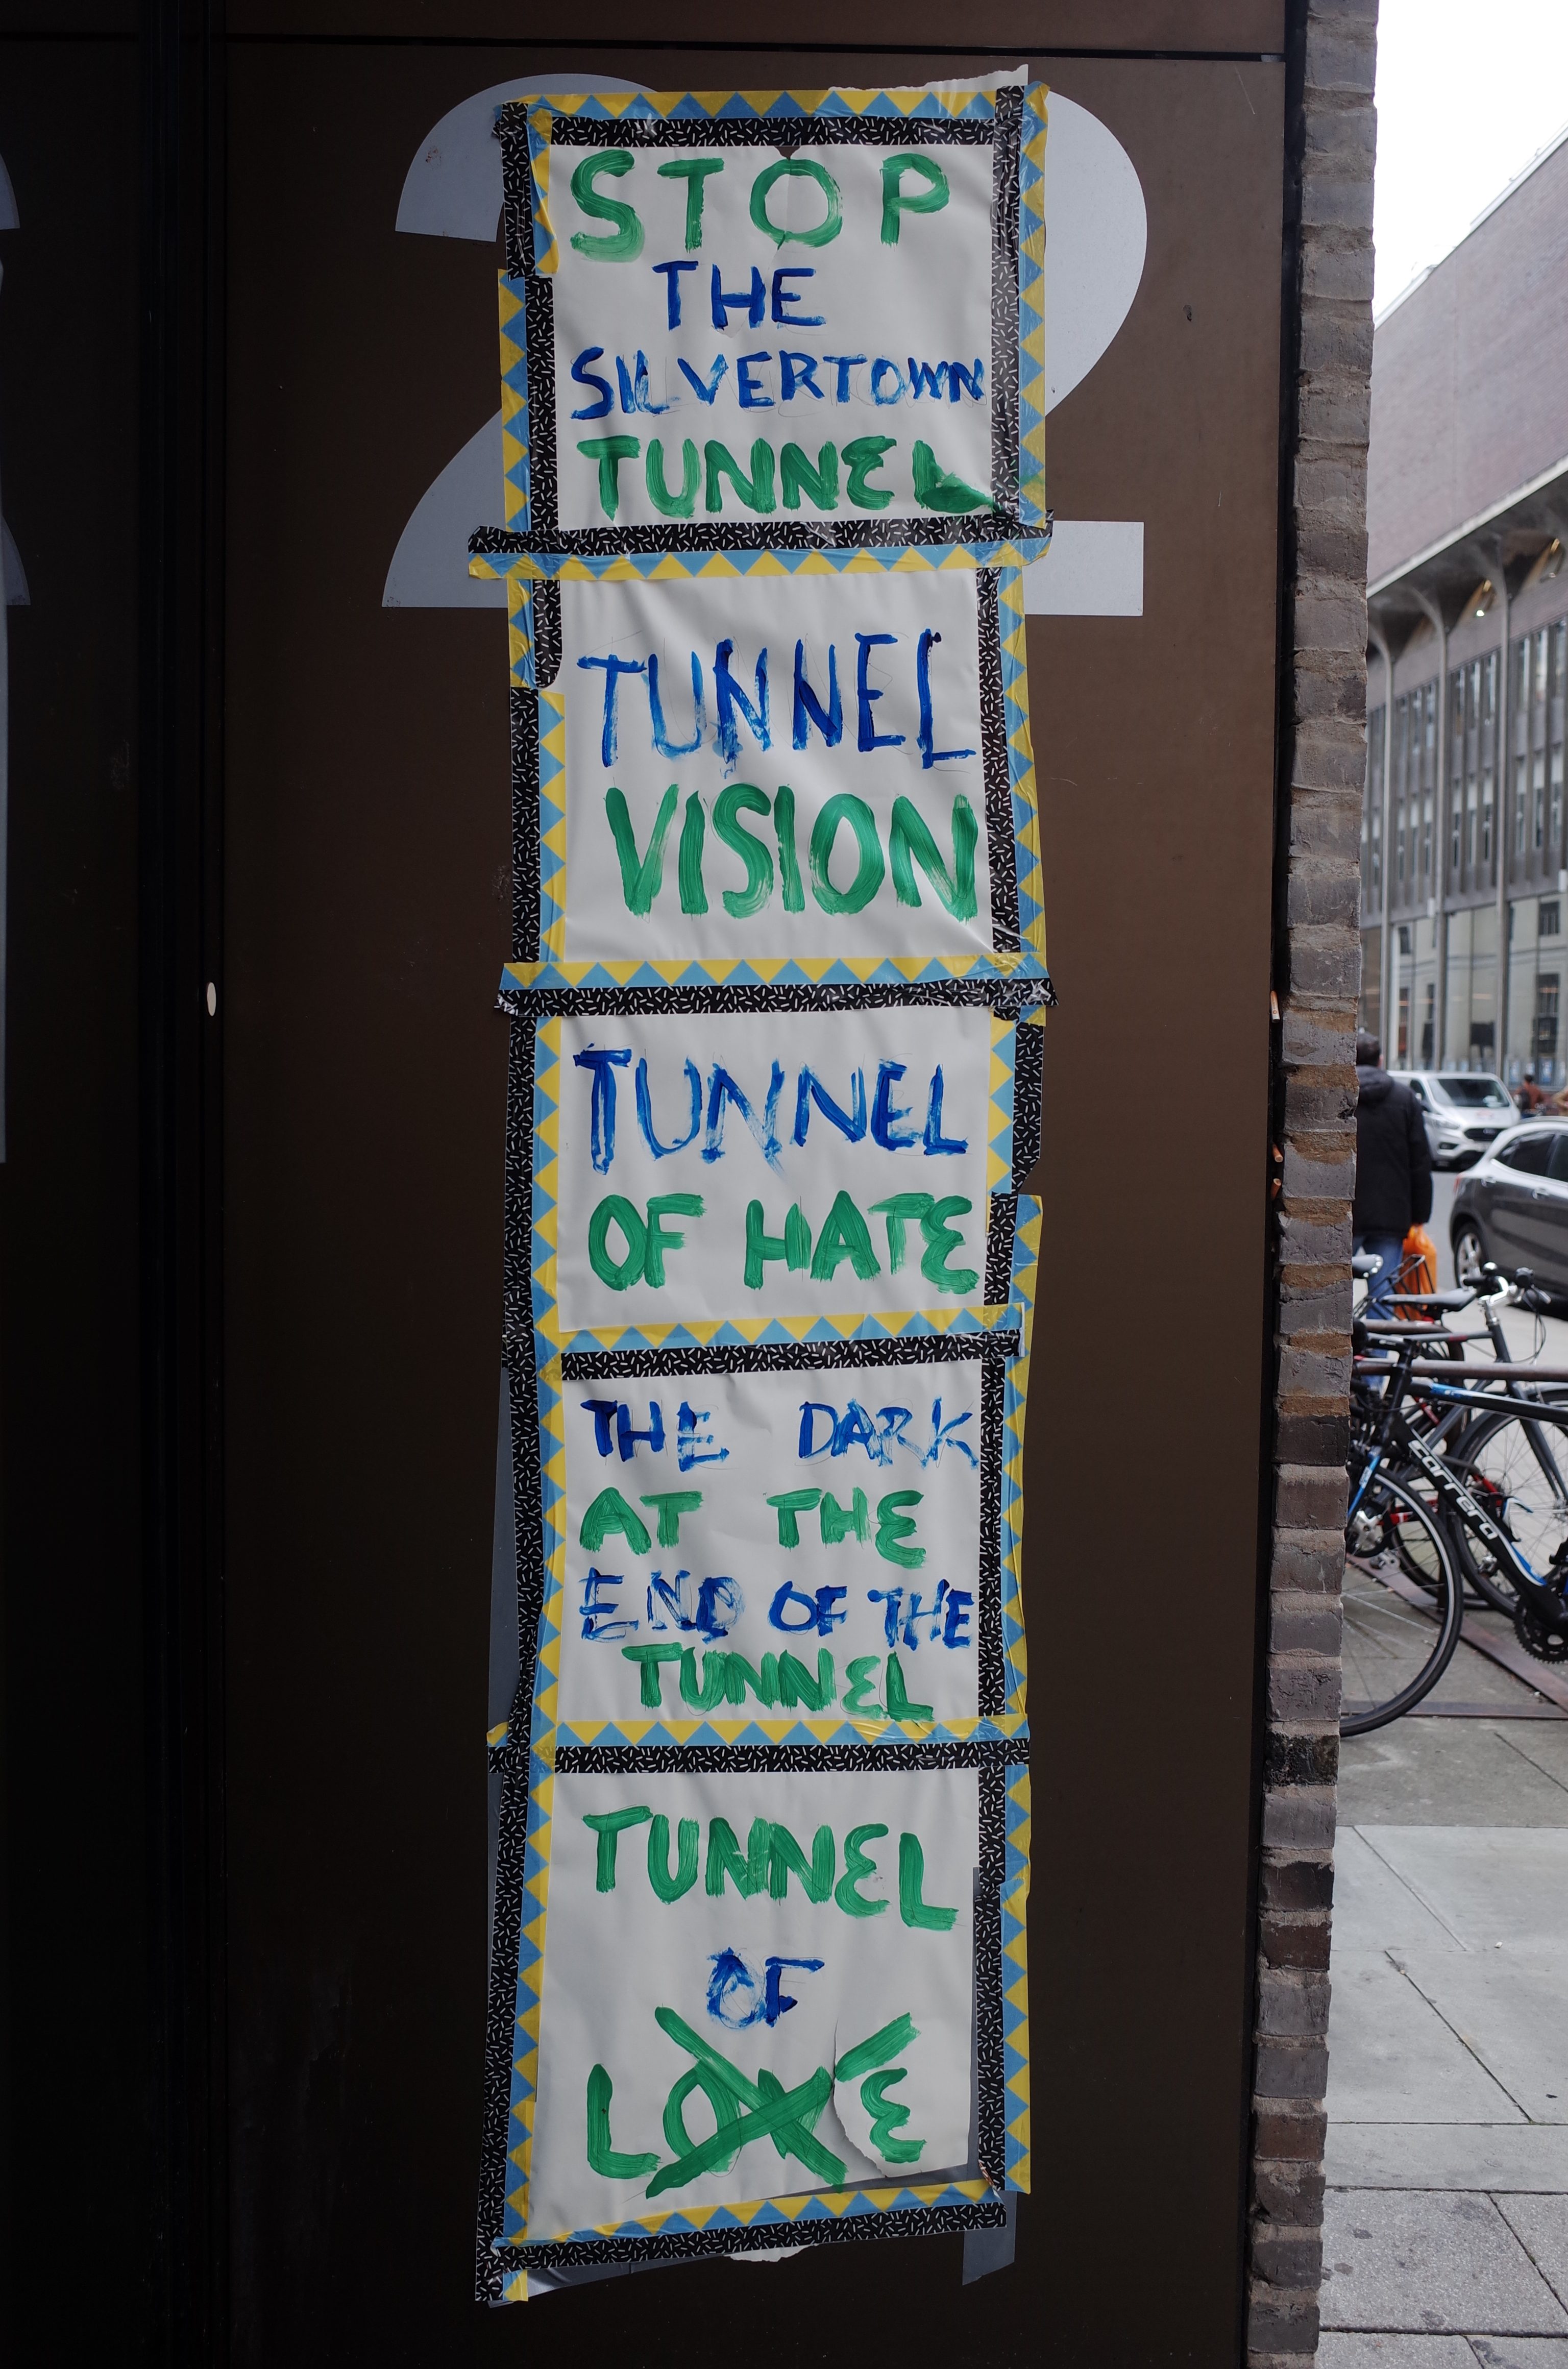 2
STOP
THE
SILVERTOWN
TUNNEL
TUNNEL
VISION
TUNNEL
OF HATE
THE DARK
AT THE
END OF THE
TUNNEL
TUNNEL
OF
LOVE
carrera